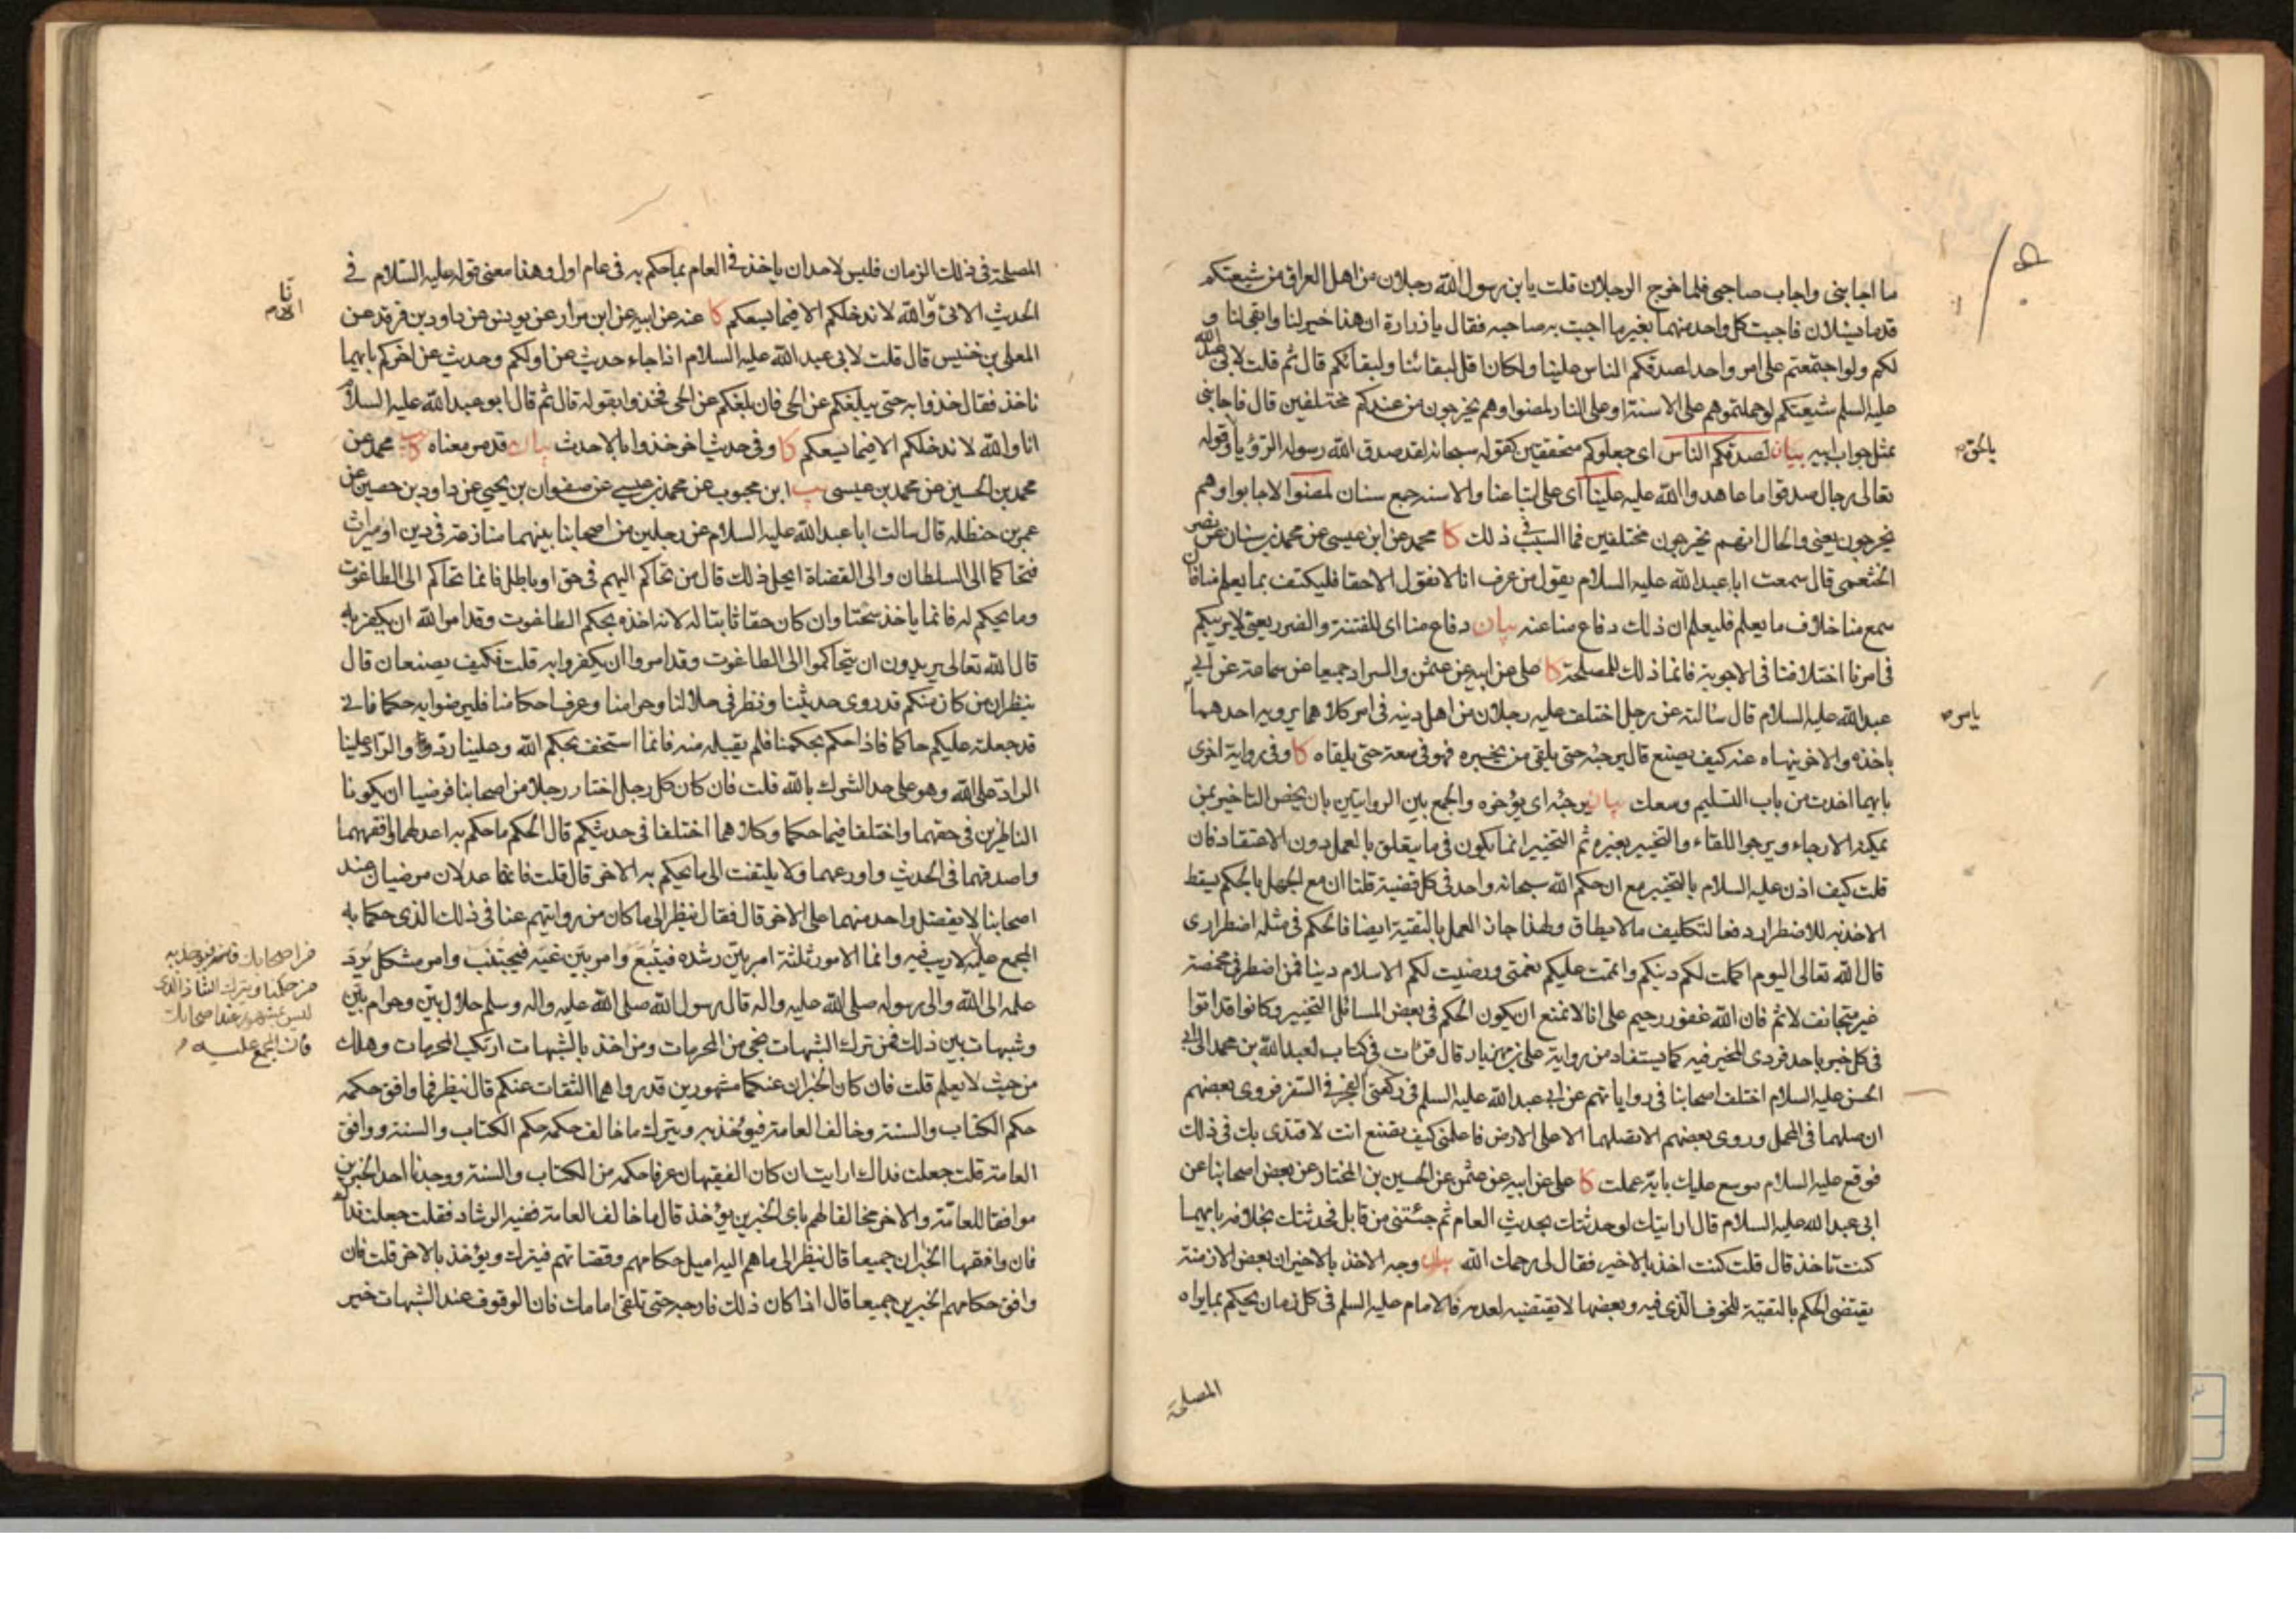 ما اجابنى واجاب صاحبى فلما خرج الرجلان قلت يا بن رسول الله رجلان من اهل العراق من شيعتكم
قدما يسئلان فاجبت كل واحد منهما بغير ما اجبت به صاحبه فقال يا زرارة ان هذا خير لنا وابقى لنا و
لكم ولو اجتمعتم على امر واحد لصدقكم الناس علينا ولكان اقل لبقائنا ولبقائكم قال ثم قلت لابى عبد الله
عليه السلم شيعتكم لو حملتموهم على الاسنة او على النار لمضوا وهم يخرجون من عندكم مختلفين قال فاجابنى
بمثل جواب ابيه بيان لصدقكم الناس اى جعلوكم متحققين كقوله سبحانه لقد صدق الله رسوله الرؤيا وقوله
بالحق
تعالى رجال صدقوا ما عاهدوا الله عليه علينا اى على اتباعنا والاسنة جمع سنان لمضوا لاجابوا وهم
يخرجون يعنى والحال انهم يخرجون مختلفين فما السبب فى ذلك كا محمد عن ابن عيسى عن محمد بن سنان عن نصر
الخثعمى قال سمعت ابا عبد الله عليه السلام يقول من عرف انا لا نقول الا حقا فليكتف بما يعلم منا فان
سمع منا خلاف ما يعلم فليعلم ان ذلك دفاع منا عنه بيان دفاع منا اى للفتنة والضرر يعنى لا يريبكم
فى امرنا اختلافنا فى الاجوبة فانما ذلك للمصلحة كا على عن ابيه عن عثمن والسراد جميعا عن سماعة عن ابى
عبد الله عليه السلام قال سئالته عن رجل اختلف عليه رجلان من اهل دينه فى امر كلاهما يرويه احدهما
يامر
باخذه والاخر ينهاه عنه كيف يصنع قال يرجئه حتى يلقى من يخبره فهو فى سعة حتى يلقاه كا وفى رواية اخرى
بايهما اخذت من باب التسليم وسعك بيان يرجئه اى يؤخره والجمع بين الروايتين بان يخص التاخير بمن
يمكنه الارجاء ويرجو اللقاء والتخيير بغيره ثم التخيير انما يكون فى ما يتعلق بالعمل دون الاعتقاد فان
قلت كيف اذن عليه السلام بالتخيير مع ان حكم الله سبحانه واحد فى كل قضية قلنا ان مع الجهل بالحكم يسقط
الاخذ به للاضطرار دفعا لتكليف ما لا يطاق ولهذا جاز العمل بالتقية ايضا فالحكم فى مثله اضطرارى
قال الله تعالى اليوم اكملت لكم دينكم واتممت عليكم نعمتى ورضيت لكم الاسلام دينا فمن اضطر فى مخمصة
غير متجانف لاثم فان الله غفور رحيم على انا لا نمنع ان يكون الحكم فى بعض المسائل التخيير وكانوا قد اتوا
فى كل خبر باحد فردى المخير فيه كما يستفاد من رواية على بن مهزيار قال قرئت فى كتاب لعبد الله بن محمد الى ابى
الحسن عليه السلام اختلف اصحابنا فى رواياتهم عن ابى عبد الله عليه السلم فى ركعتى الفجر فى السفر فروى بعضهم
ان صلهما فى المحمل وروى بعضهم الا تصلهما الا على الارض فاعلمنى كيف تصنع انت لاقتدى بك فى ذلك
فوقع عليه السلام موسع عليك باية عملت كا على عن ابيه عن عثمن عن الحسين بن المختار عن بعض اصحابنا عن
ابى عبد الله عليه السلام قال ارايتك لو حدثتك بحديث العام ثم جئتنى من قابل فحدثتك بخلافه بايهما
كنت تاخذ قال قلت كنت اخذ بالاخير فقال لى رحمك الله بيان وجه الاخذ بالاخير ان بعض الازمنة
يقتضى الحكم بالتقية للخوف الذى فيه وبعضها لا يقتضيه لعدمه فالامام عليه السلم فى كل زمان يحكم بما يراه
المصلحة
المصلحة فى ذلك الزمان فليس لاحد ان ياخذ فى العام بما حكم به فى عام اول وهذا معنى قوله عليه السلام فى
الحديث الاتى والله لا ندخلكم الا فيما يسعكم كا عنه عن ابيه عن ابن مرار عن يونس عن داود بن فرقد عن
المعلى بن خنيس قال قلت لابى عبد الله عليه السلام اذا جاء حديث عن اولكم وحديث عن اخركم بايهما
ناخذ فقال خذوا به حتى يبلغكم عن الحى فان بلغكم عن الحى فخذوا بقوله قال ثم قال ابو عبد الله عليه السلام
انا والله لا ندخلكم الا فيما يسعكم كا وفى حديث اخر خذوا بالاحدث بيان قد مر معناه كا محمد عن
محمد بن الحسين عن محمد بن عيسى يب ابن محبوب عن محمد بن عيسى عن صفوان بن يحيى عن داود بن حصين عن
عمر بن حنظله قال سالت ابا عبد الله عليه السلام عن رجلين من اصحابنا بينهما منازعة فى دين او ميراث
فتحاكما الى السلطان والى القضاة ايحل ذلك قال من تحاكم اليهم فى حق او باطل فانما تحاكم الى الطاغوت
وما يحكم له فانما ياخذ سحتا وان كان حقا ثابتا له لانه اخذه بحكم الطاغوت وقد امر الله ان يكفر به
قال الله تعالى يريدون ان يتحاكموا الى الطاغوت وقد امروا ان يكفروا به قلت فكيف يصنعان قال
ينظران من كان منكم قد روى حديثنا ونظر فى حلالنا وحرامنا وعرف احكامنا فليرضوا به حكما فانى
قد جعلته عليكم حاكما فاذا حكم بحكمنا فلم يقبله منه فانما استخف بحكم الله وعلينا رد والراد علينا
الراد على الله وهو على حد الشرك بالله قلت فان كان كل رجل اختار رجلا من اصحابنا فرضيا ان يكونا
الناظرين فى حقهما واختلفا فيما حكما وكلاهما اختلفا فى حديثكم قال الحكم ما حكم به اعدلهما وافقههما
واصدقهما فى الحديث واورعهما ولا يلتفت الى ما يحكم به الاخر قال قلت فانهما عدلان مرضيان عند
اصحابنا لا يفضل واحد منهما على الاخر قال فقال ينظر الى ما كان من روايتهم عنا فى ذلك الذى حكما به
المجمع عليه لا ريب فيه وانما الامور ثلثة امر بين رشده فيتبع وامر بين غيه فيجتنب وامر مشكل يرد
من اصحابك فيؤخذ به
من حكمنا ويترك الشاذ الذى
ليس بمشهور عند اصحابك
فان المجمع عليه
علمه الى الله والى رسوله صلى الله عليه واله قال رسول الله صلى الله عليه واله وسلم حلال بين وحرام بين
وشبهات بين ذلك فمن ترك الشبهات نجى من المحرمات ومن اخذ بالشبهات ارتكب المحرمات وهلك
من حيث لا يعلم قلت فان كان الخبران عنكما مشهورين قد رواهما الثقات عنكم قال ينظر فما وافق حكمه
حكم الكتاب والسنة وخالف العامة فيؤخذ به ويترك ما خالف حكمه حكم الكتاب والسنة ووافق
العامة قلت جعلت فداك ارايت ان كان الفقيهان عرفا حكمه من الكتاب والسنة ووجدنا احد الخبرين
موافقا للعامة والاخر مخالفا لهم باى الخبرين يؤخذ قال ما خالف العامة ففيه الرشاد فقلت جعلت فداك
فان وافقها الخبران جميعا قال ينظر الى ما هم اليه اميل حكامهم وقضاتهم فيترك ويؤخذ بالاخر قلت فان
وافق حكامهم الخبرين جميعا قال اذا كان ذلك فارجه حتى تلقى امامك فان الوقوف عند الشبهات خير